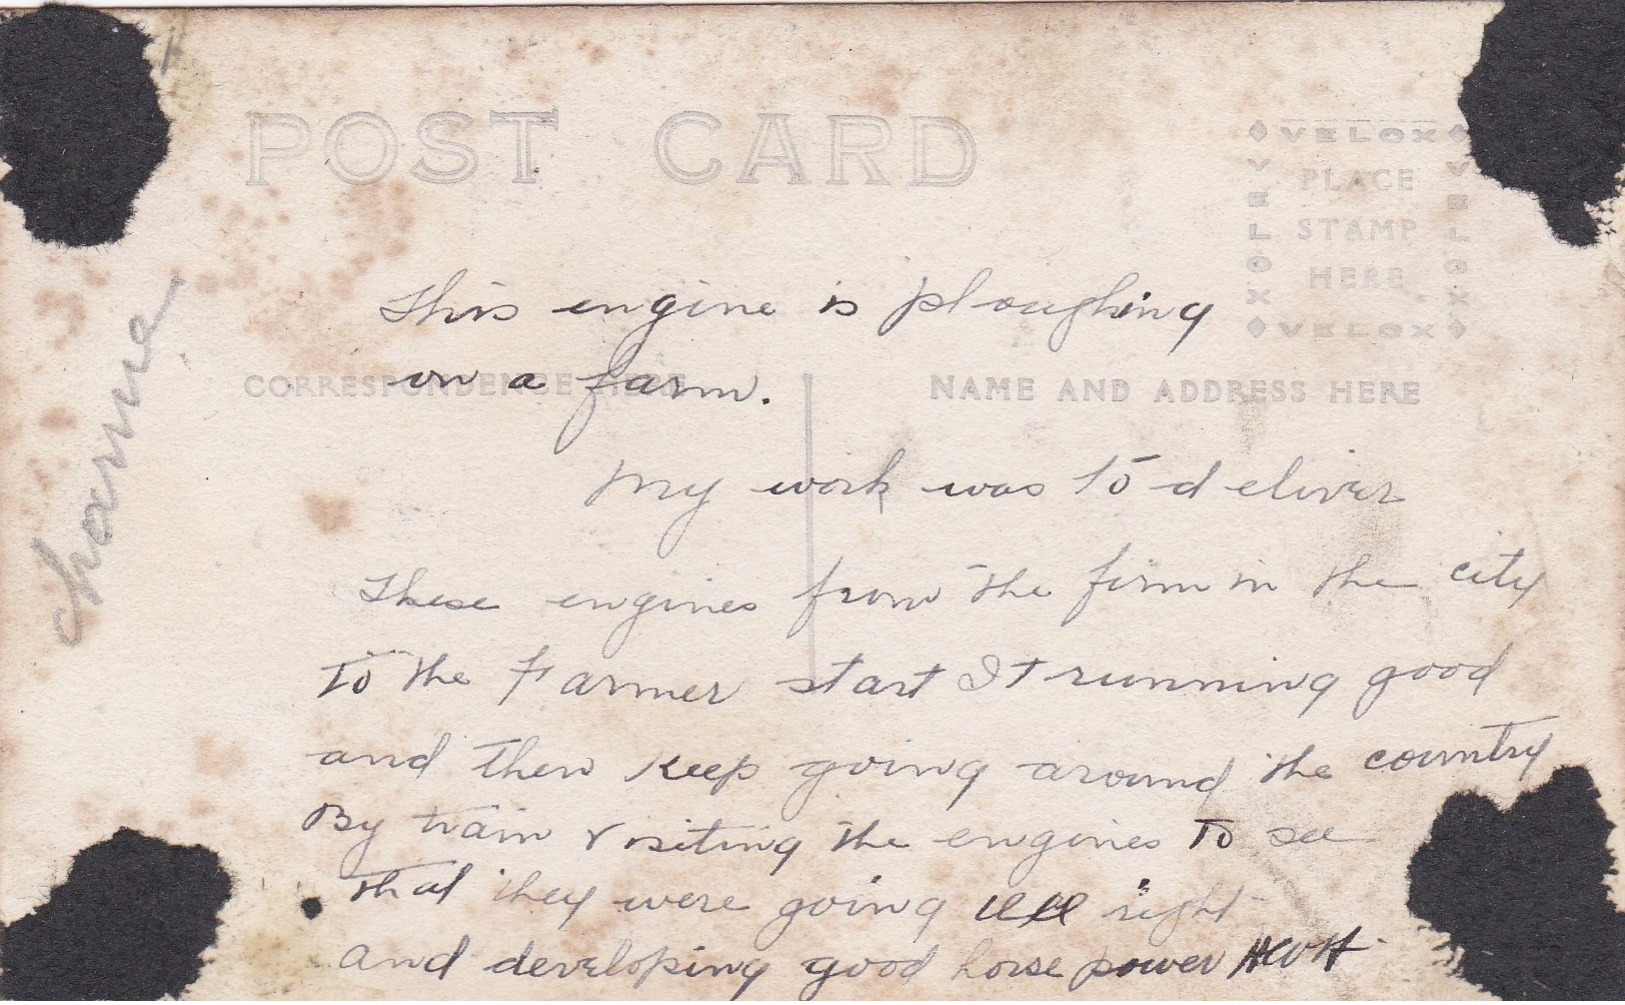 POST CARD
VELOX
VELOX
PLACE
STAMP
HERE
VELOX
VELOX
This engine is ploughing
CORRESPONDENCE HERE
NAME AND ADDRESS HERE
on a farm.
My work was to deliver
These engines from the firm in the city
To the Farmer start It running good
and then keep going around the country
By train visiting the engines To see
that they were going all right
and developing good horse power